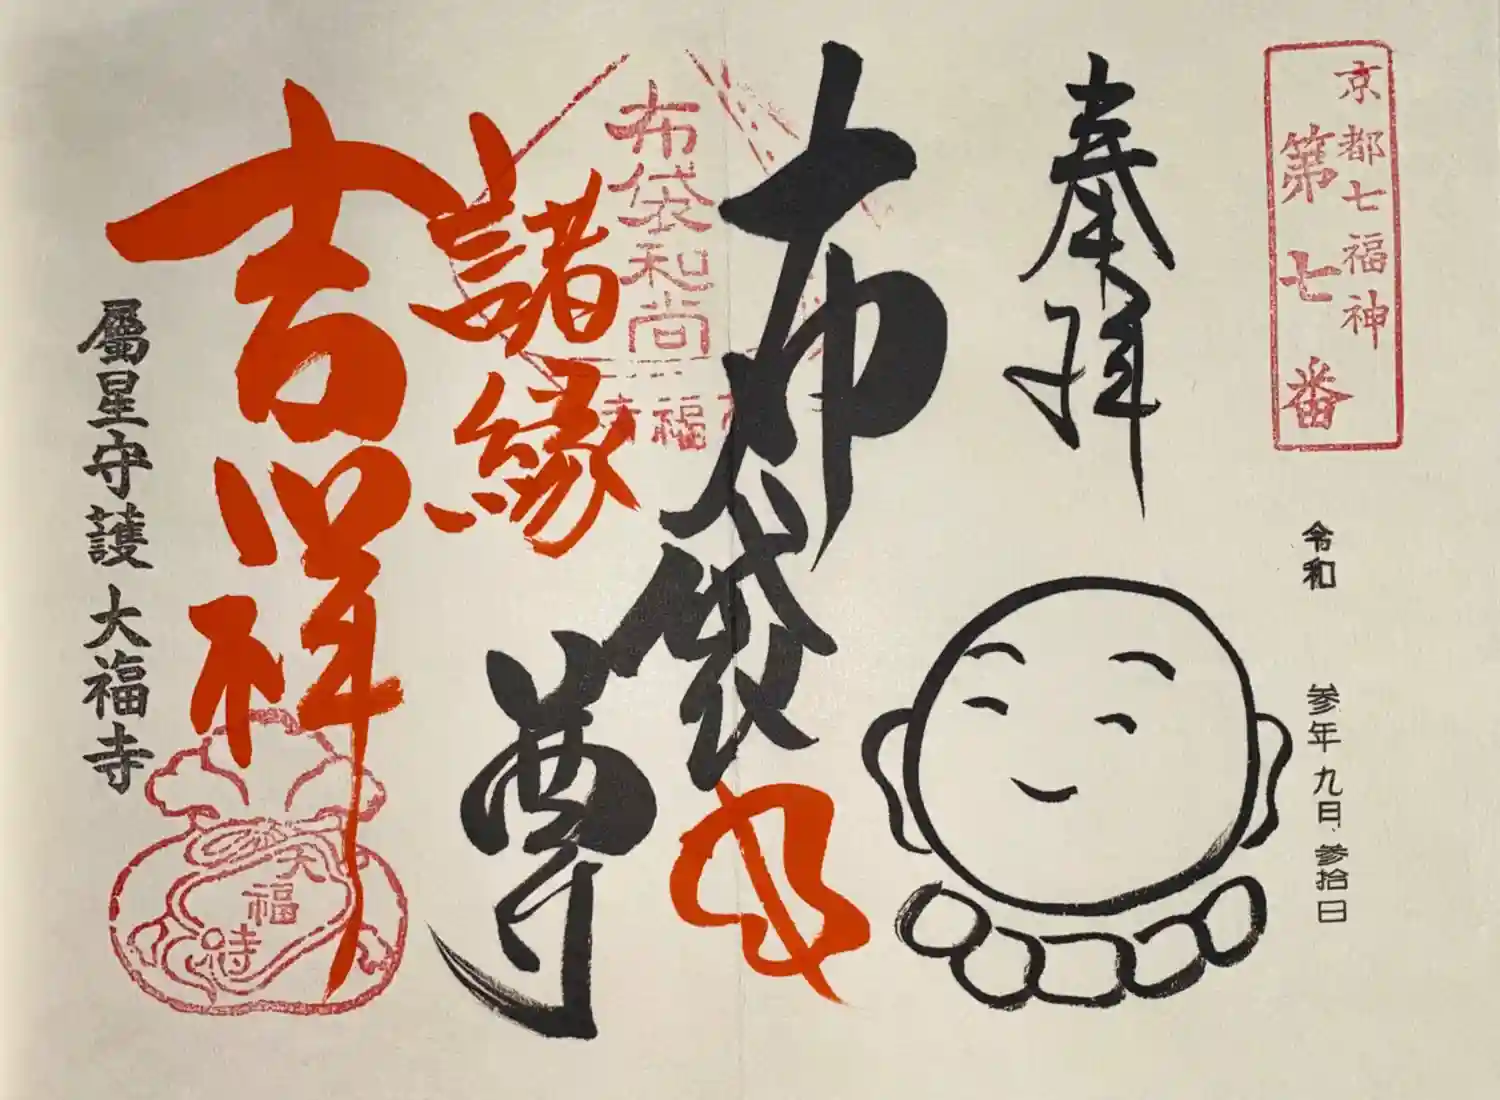 京都七福神
第七番
奉拝
令和 参年九月参拾日
布袋尊
布袋和尚
福寺
諸縁
吉祥
屬星守護 大福寺
大福寺